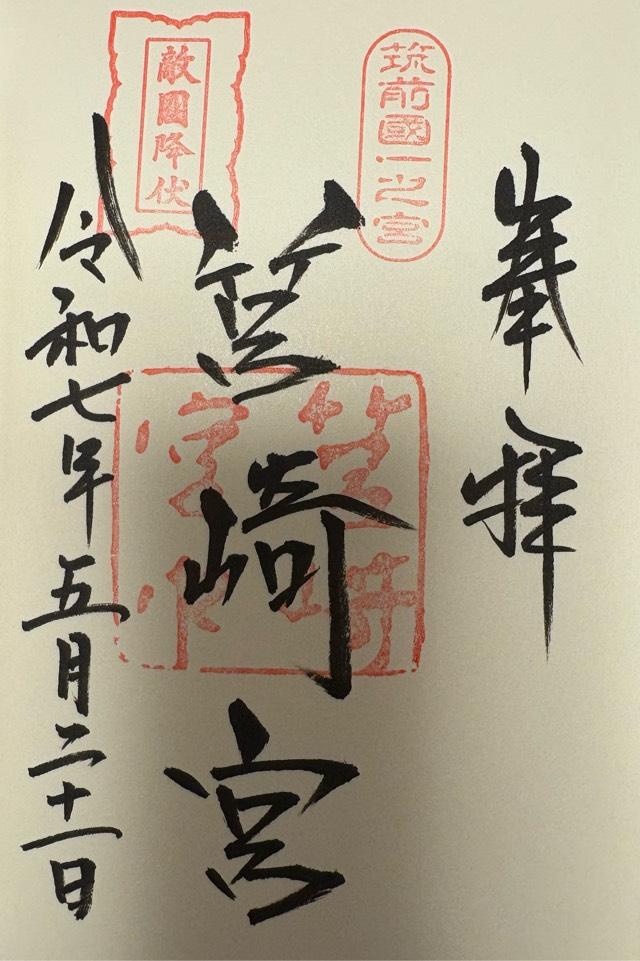 奉拝
筑前國一之宮
筥崎宮
敵國降伏
令和七年五月二十一日